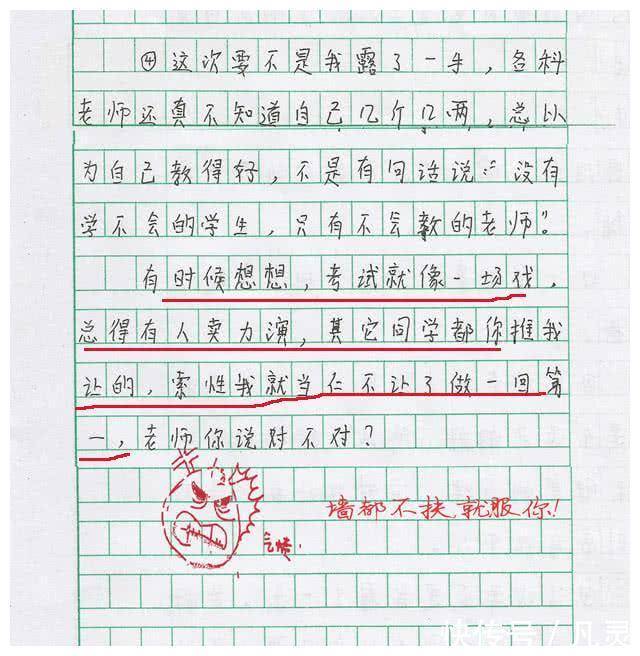 ④这次要不是我露了一手，各科
老师还真不知道自己几个几两，总以
为自己教得好，不是有句话说："没有
学不会的学生，只有不会教的老师"。
有时候想想，考试就像一场戏，
总得有人卖力演，其它同学都你推我
让的，索性我就当仁不让了做一回第
一，老师你说对不对？
墙都不扶就服你！
快传号/凡灵